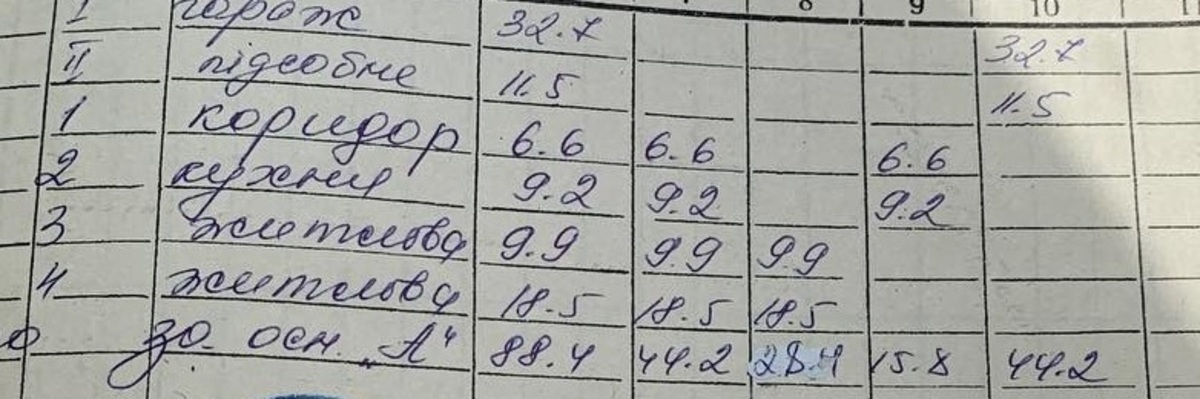 8 9 10 11
I гараж 32.7 32.7
II підсобне 11.5 11.5
1 коридор 6.6 6.6 6.6
2 кухня 9.2 9.2 9.2
3 житлова 9.9 9.9 9.9
4 житлова 18.5 18.5 18.5
по осн. „А" 88.4 44.2 28.4 15.8 44.2